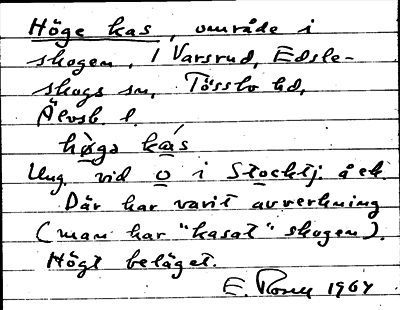 Höge kas, område i
skogen, 1 Varsrud, Edsle-
skogs sn, Tössbo hd,
Älvsb. l.
hògə kás
Ung. vid o i Stocktj. å ek.
Där har varit avverkning
(man har "kasat" skogen).
Högt beläget.
E. 1964